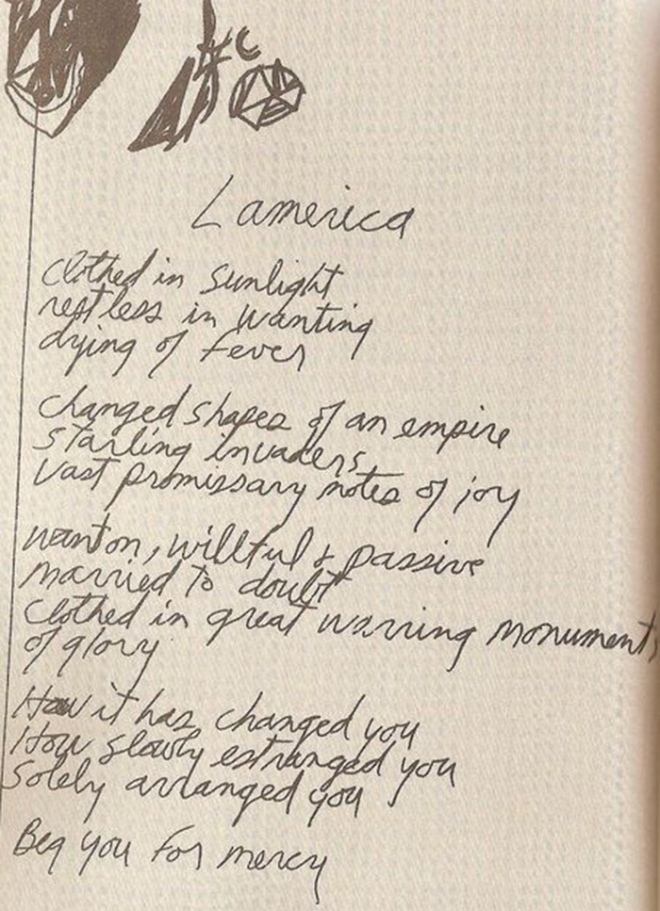 Lamerica
Clothed in sunlight
restless in wanting
dying of fever
Changed shapes of an empire
starling invaders
Vast promissary notes of joy
wanton, willful & passive
married to doubt
Clothed in great warring monuments
of glory
How it has changed you
How slowly estranged you
Solely arranged you
Beg you for mercy